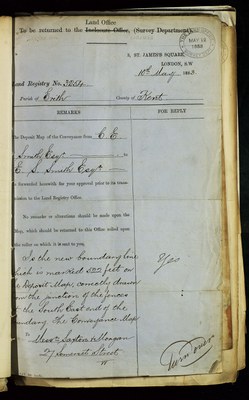 Land Office
To be returned to the Inclosure Office, (Survey Department)
3, ST. JAMES'S SQUARE,
LONDON, S.W
10th May 1883
Land Registry No.
Parish of Erith County of Kent.
REMARKS
FOR REPLY
The Deposit Map of the Conveyance from C. E.
Smith Esqr to
E. S. Smith Esqr
is forwarded herewith for your approval prior to its trans-
mission to the Land Registry Office.
No remarks or alterations should be made upon the
Map, which should be returned to this Office rolled upon
the roller on which it is sent to you.
Is the new boundary line
which is marked 522 feet on
the Deposit Map, correctly drawn
from the junction of the fences
at the South East end of the
boundary. The Conveyance Map
Yes
Messrs Saxton & Morgan
27 Somerset Street
W
Turn over